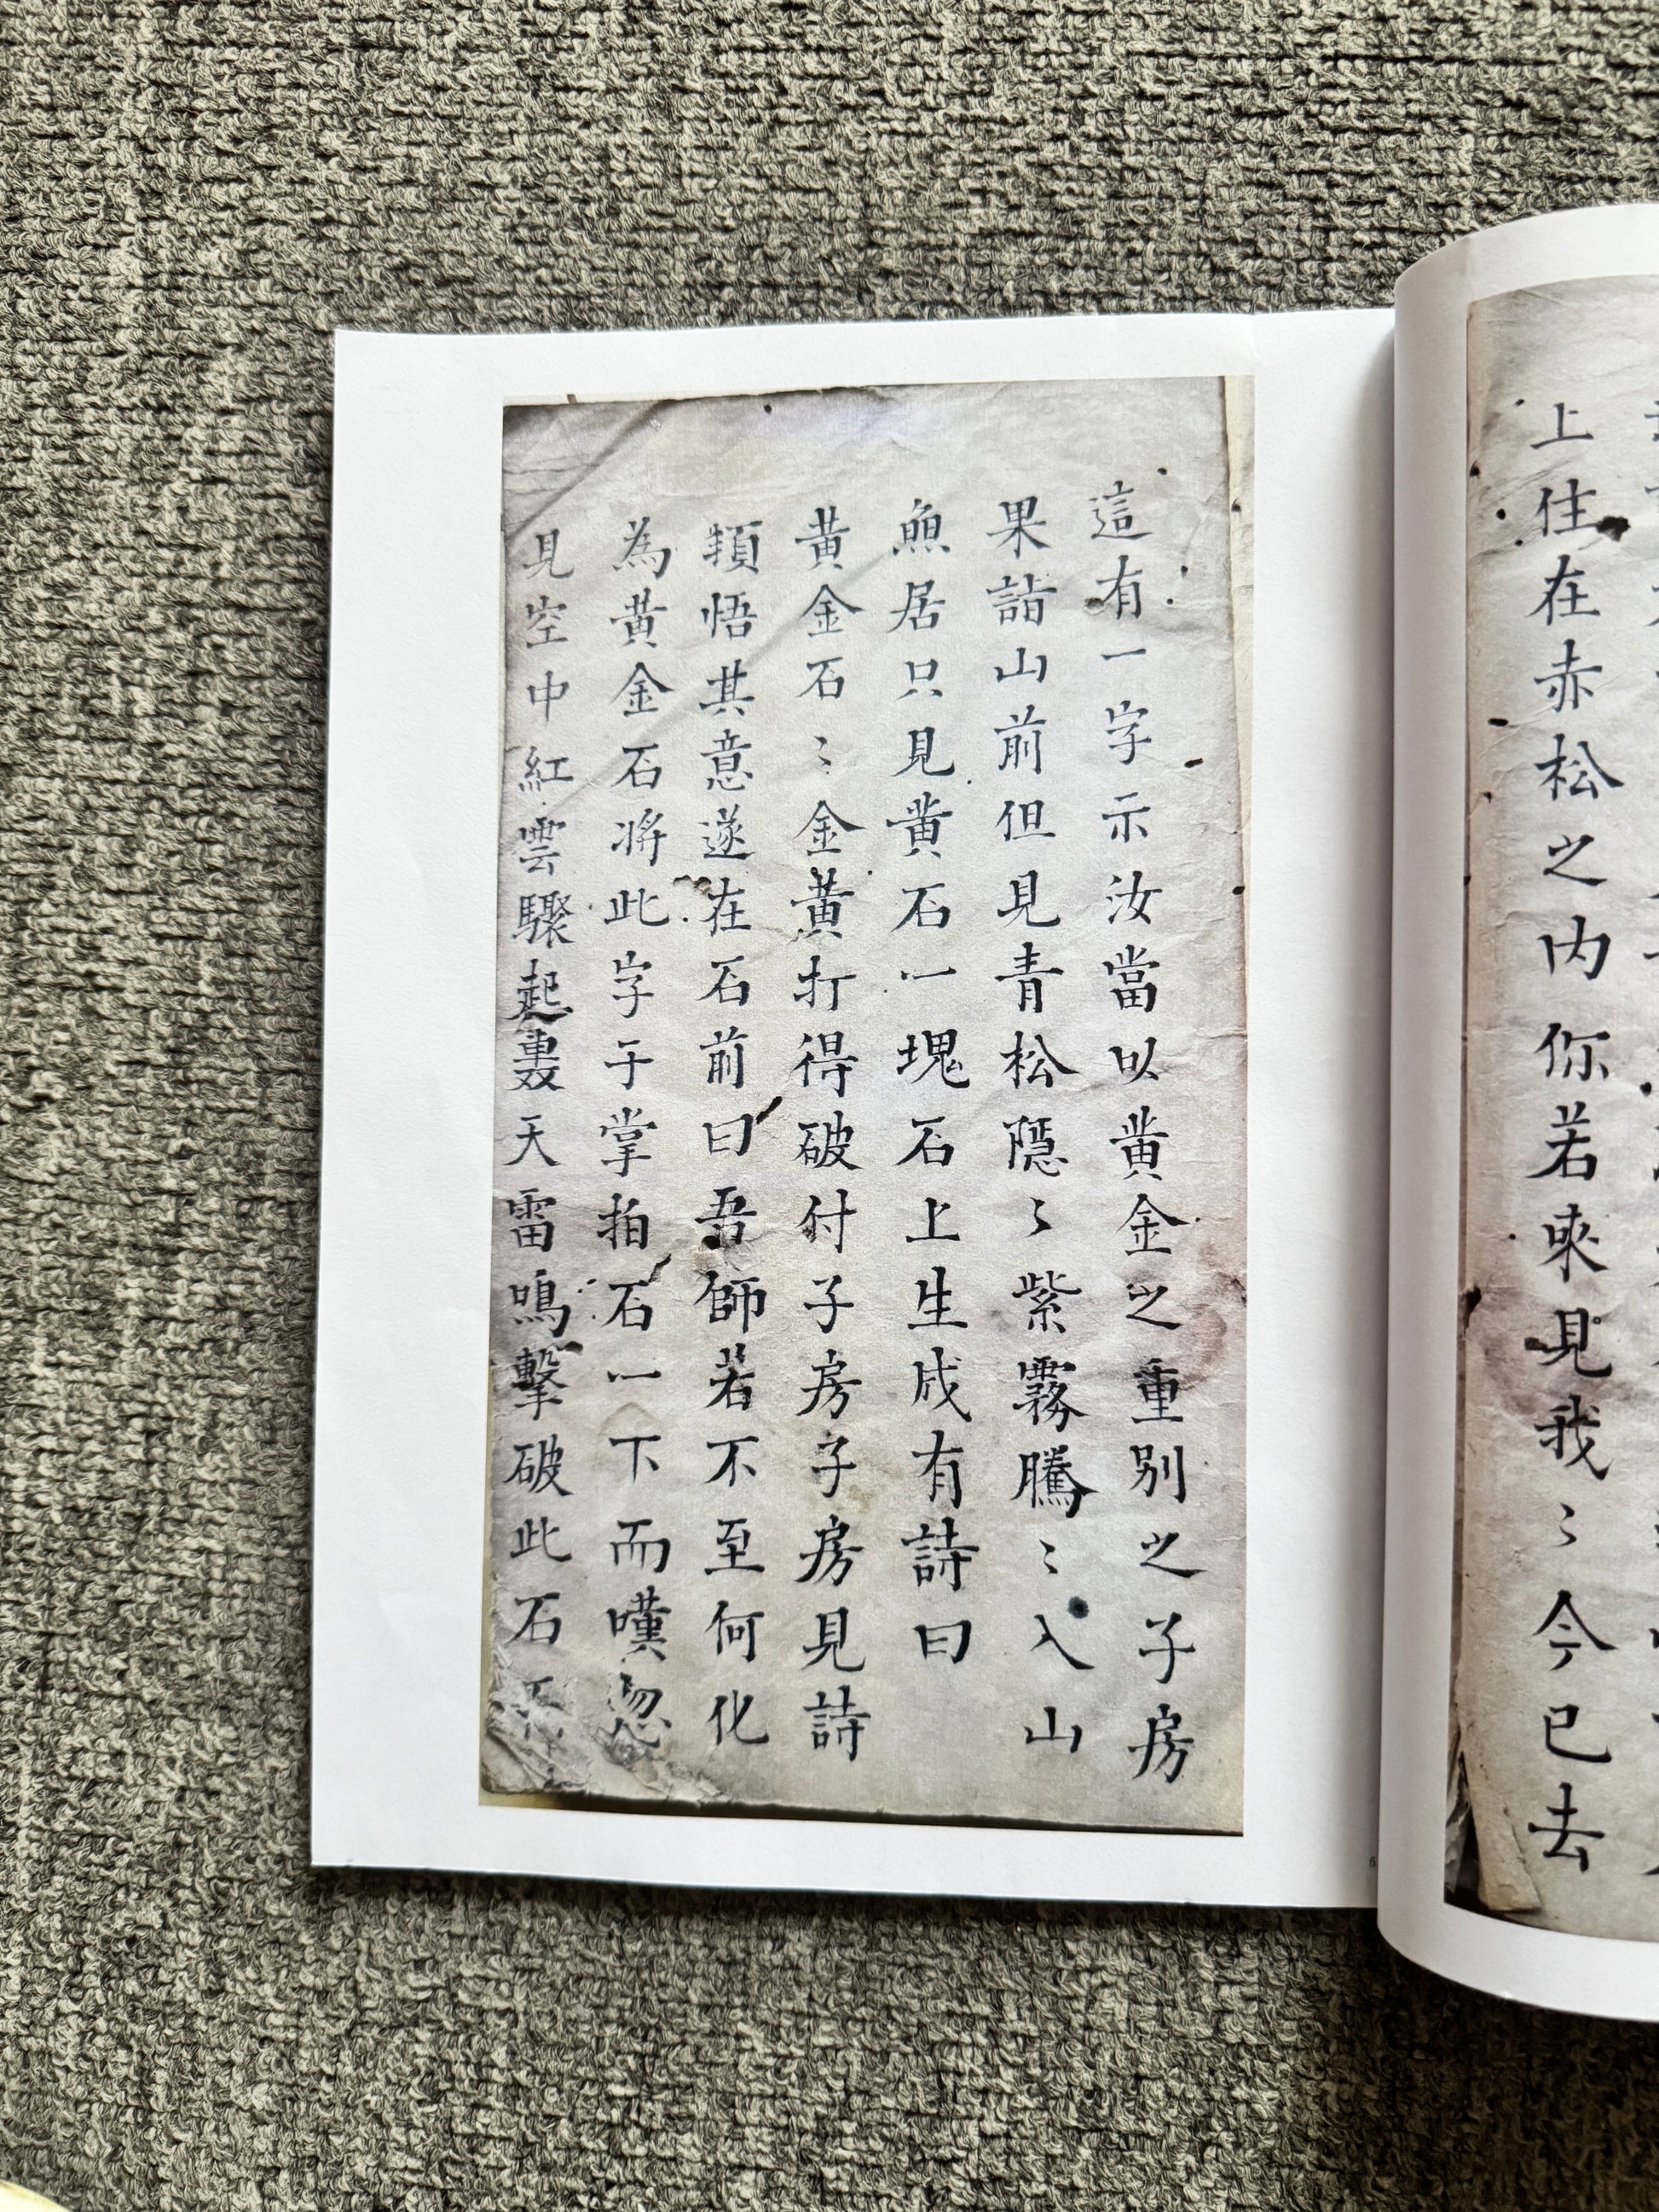 上住在赤松之内你若來見我〻今已去
這有一字示汝當以黄金之重别之子房
果詣山前但見青松隱〻紫霧騰〻入山
無居只見黄石一塊石上生成有詩曰
黄金石〻金黄打得破付子房子房見詩
頓悟其意遂在石前曰吾師若不至何化
為黄金石將此字于掌拍石一下而嘆忽
見空中紅雲驟起轟天雷鳴擊破此石